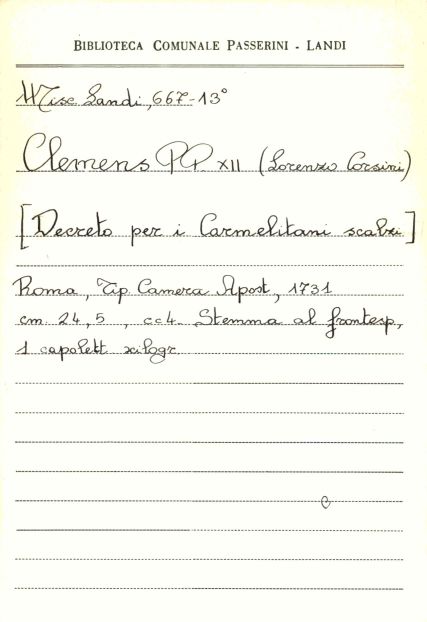 BIBLIOTECA COMUNALE PASSERINI - LANDI
Misc Landi, 667-13°
Clemens PP. XII (Lorenzo Corsini)
[Decreto per i Carmelitani scalzi]
Roma, Tip. Camera Apost, 1731
cm 24,5, cc4. Stemma al frontesp,
1 capolett xilogr